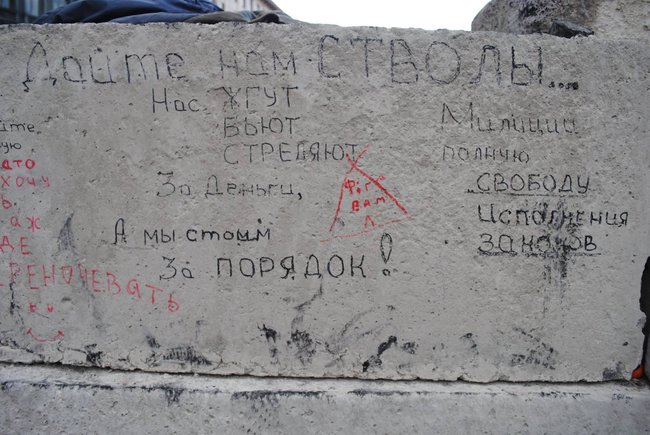 Дайте нам СТВОЛЫ...
Нас ЖГУТ
БЬЮТ
СТРЕЛЯЮТ
За Деньги,
А мы стоим
За ПОРЯДОК!
Милиции
полную
СВОБОДУ
Исполнения
законов
вам
хочу
ДЕ